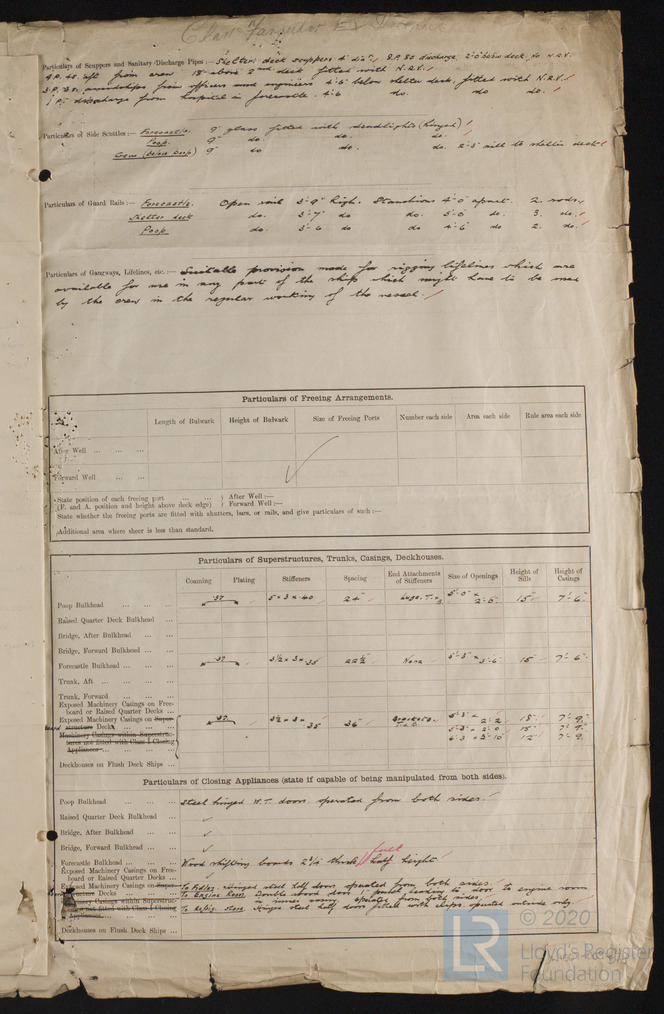 Particulars of Scuppers and Sanitary Discharge Pipes:— Shelter deck scuppers 4" dia. S.P. 80 discharge, 2'-0 below deck, fo N.R.V.
4 P. 4S. aft from crew 18" above 2nd deck fitted with N.R.V.
3 P. 3 S. amidships from officers and engineers 4'-6" below shelter deck, fitted with N.R.V.
1 P. discharge from hospital in forecastle. 4'-6 do. do do.
Particulars of Side Scuttles:— Forecastle. 9" glass fitted with deadlights (hinged)
Poop. 9" do do. do.
Crew (below Poop) 9" do do. do. 2'-3" sill to shelter deck
Particulars of Guard Rails:— Forecastle. Open rail 3'-9" high. Stanchions 4'-0 apart. 2. rods.
Shelter deck do. 3'-7" do do. 5'-0 do. 3. do.
Poop do. 3'-6 do do 4'-6 do 2. do.
Particulars of Gangways, Lifelines, etc.:— Suitable provision made for rigging lifelines which are
available for use in any part of the ship which might have to be used
by the crew in the regular working of the vessel.
Particulars of Freeing Arrangements.
Length of Bulwark Height of Bulwark Size of Freeing Ports Number each side Area each side Rule area each side
After Well ... ... ...
Forward Well ... ...
State position of each freeing port ... ... ... } After Well:—
(F. and A. position and height above deck edge) } Forward Well:—
State whether the freeing ports are fitted with shutters, bars, or rails, and give particulars of such:—
Additional area where sheer is less than standard.
Particulars of Superstructures, Trunks, Casings, Deckhouses.
Coaming Plating Stiffeners Spacing End Attachments of Stiffeners Size of Openings Height of Sills Height of Casings
Poop Bulkhead ... ... ... .37 5 × 3 × .40 24" Lugs. T.+B 5'-0" × 2'-6" 15" 7'-6"
Raised Quarter Deck Bulkhead ...
Bridge, After Bulkhead ... ...
Bridge, Forward Bulkhead ... ...
Forecastle Bulkhead ... ... ... .37 3½ × 3 × .35 22½" None 5'-3" × 3'-6 15" 7'-6"
Trunk, Aft ... ... ... ...
Trunk, Forward ... ... ...
Exposed Machinery Casings on Free-
board or Raised Quarter Decks ...
Exposed Machinery Casings on Super-
structure Decks ... ... .37 3½ × 3 × .35 36" Brackets T + B 5'-3" × 2'-2 18" 7'-9"
Machinery Casings within Superstruc- 5'-3" × 2'-0 15" 7'-9"
tures not fitted with Class I Closing 6'-3 × 3'-10" 12" 7'-9
Appliances ... ... ...
Deckhouses on Flush Deck Ships ...
Particulars of Closing Appliances (state if capable of being manipulated from both sides).
Poop Bulkhead ... ... ... Steel hinged W.T. doors operated from both sides.
Raised Quarter Deck Bulkhead ...
Bridge, After Bulkhead ... ...
Bridge, Forward Bulkhead ... ... full
Forecastle Bulkhead ... ... ... Wood shifting boards 2½" thick half height
Exposed Machinery Casings on Free-
board or Raised Quarter Decks ...
Exposed Machinery Casings on Super- To Fidley. Hinged steel half doors operated from both sides.
structure Decks ... ... To Engine Room. Double wood door 1" panel, leading to door to engine room
Machinery Casings within Superstruc- in inner casing operated from both sides.
tures not fitted with Class I Closing To Refrig. Store. Hinged steel half door fitted with clips. operated outside only.
Appliances ... ... ...
Deckhouses on Flush Deck Ships ...
© 2020
LR
Lloyd's Register
Foundation